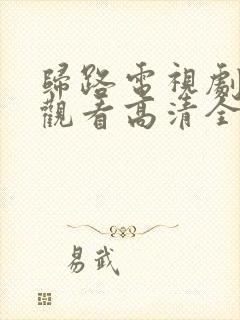 歸路電視劇
觀看高清全
易武